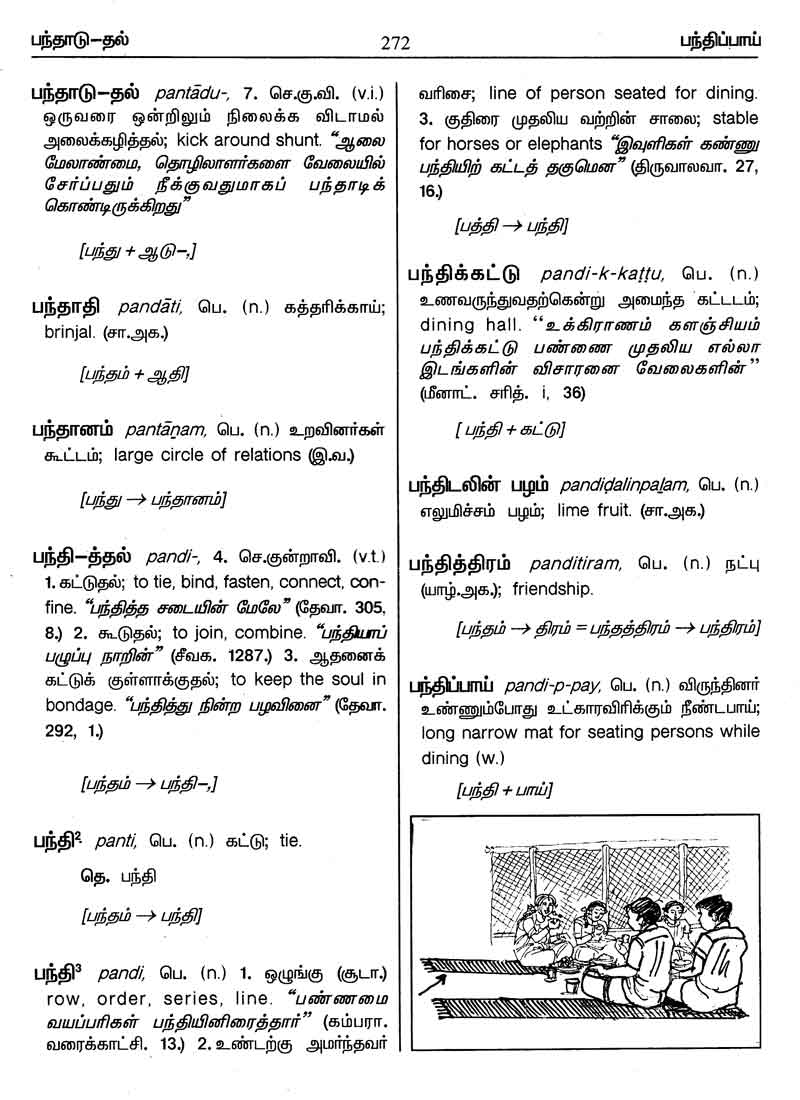 பந்தாடு-தல்
272
பந்திப்பாய்
பந்தாடு-தல் pantādu-, 7. செ.கு.வி. (v.i.)
ஒருவரை ஒன்றிலும் நிலைக்க விடாமல்
அலைக்கழித்தல்; kick around shunt. “ஆலை
மேலாண்மை, தொழிலாளர்களை வேலையில்
சேர்ப்பதும் நீக்குவதுமாகப் பந்தாடிக்
கொண்டிருக்கிறது”
[பந்து + ஆடு-,]
பந்தாதி pandāti, பெ. (n.) கத்தரிக்காய்;
brinjal. (சா.அக.)
[பந்தம் + ஆதி]
பந்தானம் pantāṉam, பெ. (n.) உறவினர்கள்
கூட்டம்; large circle of relations (இ.வ.)
[பந்து → பந்தானம்]
பந்தி-த்தல் pandi-, 4. செ.குன்றாவி. (v.t.)
1. கட்டுதல்; to tie, bind, fasten, connect, con-
fine. “பந்தித்த சடையின் மேலே” (தேவா. 305,
8.) 2. கூடுதல்; to join, combine. “பந்தியாப்
பழுப்பு நாறின்” (சீவக. 1287.) 3. ஆதனைக்
கட்டுக் குள்ளாக்குதல்; to keep the soul in
bondage. “பந்தித்து நின்ற பழவினை” (தேவா.
292, 1.)
[பந்தம் → பந்தி-,]
பந்தி² panti, பெ. (n.) கட்டு; tie.
தெ. பந்தி
[பந்தம் → பந்தி]
பந்தி³ pandi, பெ. (n.) 1. ஒழுங்கு (சூடா.)
row, order, series, line. “பண்ணமை
வயப்பரிகள் பந்தியினிரைத்தார்” (கம்பரா.
வரைக்காட்சி. 13.) 2. உண்டற்கு அமர்ந்தவர்
வரிசை; line of person seated for dining.
3. குதிரை முதலிய வற்றின் சாலை; stable
for horses or elephants “இவுளிகள் கண்ணு
பந்தியிற் கட்டத் தகுமென” (திருவாலவா. 27,
16.)
[பத்தி → பந்தி]
பந்திக்கட்டு pandi-k-kaṭṭu, பெ. (n.)
உணவருந்துவதற்கென்று அமைந்த கட்டடம்;
dining hall. “உக்கிராணம் களஞ்சியம்
பந்திக்கட்டு பண்ணை முதலிய எல்லா
இடங்களின் விசாரனை வேலைகளின்”
(மீனாட். சரித். i, 36)
[ பந்தி + கட்டு]
பந்திடலின் பழம் pandiḍalinpaḻam, பெ. (n.)
எலுமிச்சம் பழம்; lime fruit. (சா.அக.)
பந்தித்திரம் panditiram, பெ. (n.) நட்பு
(யாழ்.அக.); friendship.
[பந்தம் → திரம் = பந்தத்திரம் → பந்திரம்]
பந்திப்பாய் pandi-p-pay, பெ. (n.) விருந்தினர்
உண்ணும்போது உட்காரவிரிக்கும் நீண்டபாய்;
long narrow mat for seating persons while
dining (w.)
[பந்தி + பாய்]